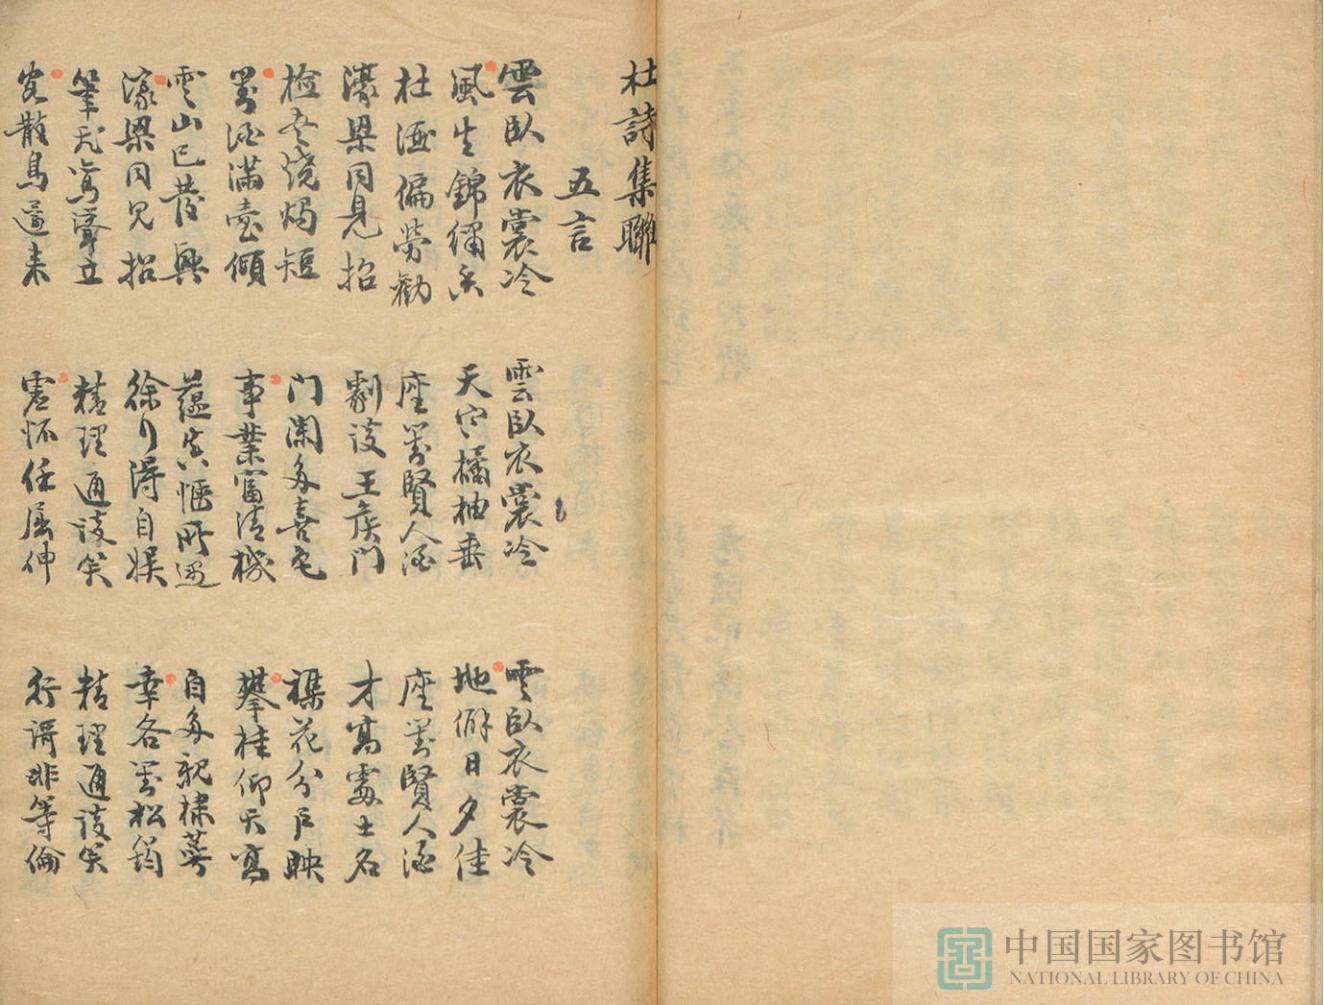 杜詩集聯
五言
雲臥衣裳冷 雲臥衣裳冷 雲臥衣裳冷
風生錦繡香 天寒橘柚垂 地僻日夕佳
杜酒偏勞勸 座對賢人酒 座對賢人酒
濠梁同見招 劇談王侯門 才高處士名
檢書燒燭短 门闌多喜色 雜花分户映
對酒滿壺傾 事業富清機 攀桂仰天高
雲山已發興 蘊真愜所遇 自多親棣萼
濠梁同見招 徐行得自娛 幸各對松筠
筆飛鸞聳立 精理通談笑 精理通談笑
客散鳥還来 虚怀任屈伸 行得非等倫
中国国家图书馆
NATIONAL LIBRARY OF CHINA